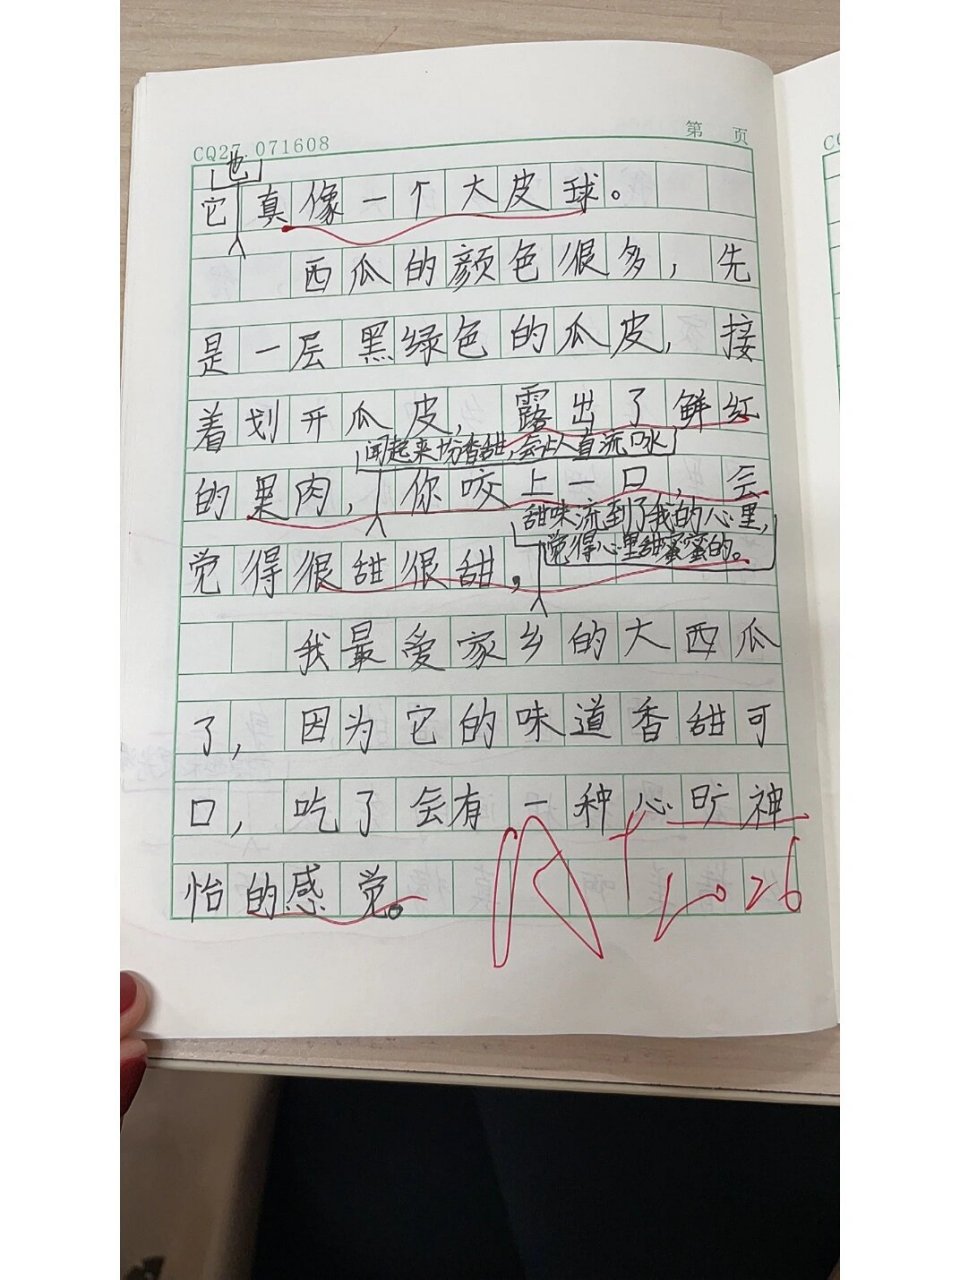 CQ27.071608
第 页
也
它真像一个大皮球。
西瓜的颜色很多，先
是一层黑绿色的瓜皮，接
着划开瓜皮，露出了鲜红
闻起来十分香甜，会让人直流口水
的果肉，你咬上一口，会
甜味流到了我的心里，
觉得心里甜蜜蜜的。
觉得很甜很甜，
我最爱家乡的大西瓜
了，因为它的味道香甜可
口，吃了会有一种心旷神
怡的感觉。